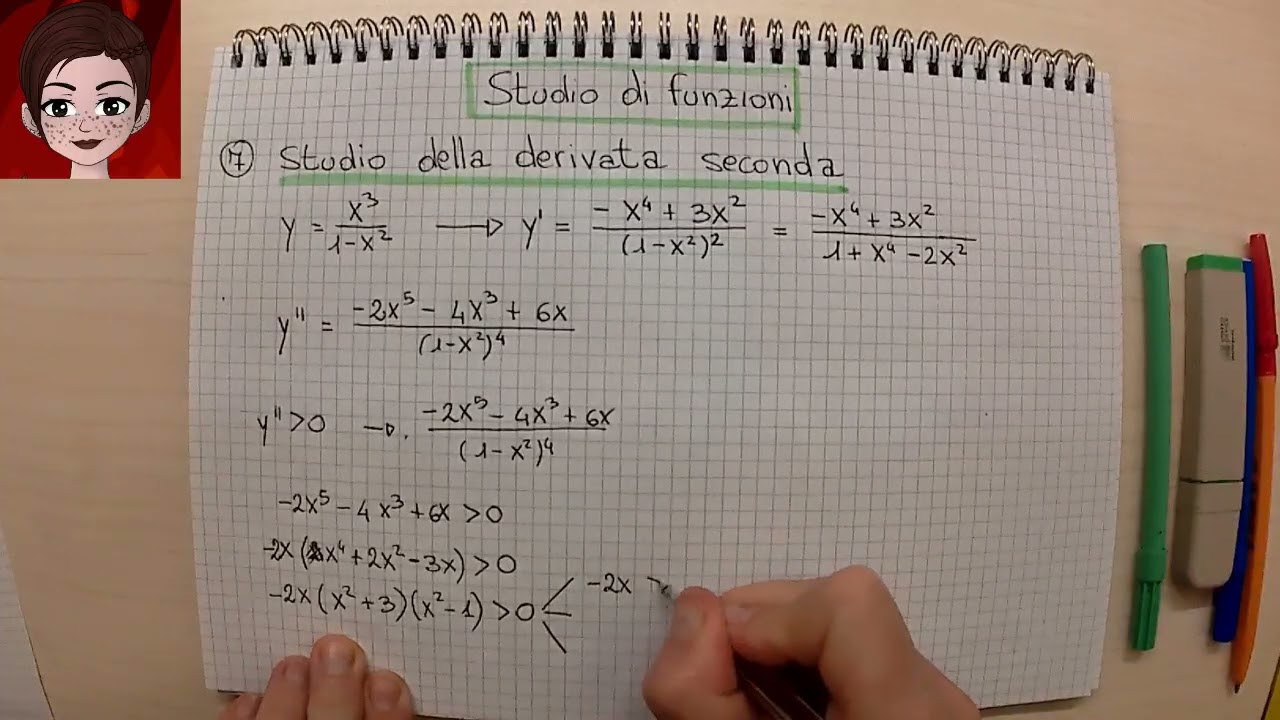 Studio di funzioni
7 Studio della derivata seconda
y = x³/(1-x²) → y' = (-x⁴ + 3x²)/(1-x²)² = (-x⁴ + 3x²)/(1 + x⁴ - 2x²)
y'' = (-2x⁵ - 4x³ + 6x)/(1-x²)⁴
y'' > 0 → (-2x⁵ - 4x³ + 6x)/(1-x²)⁴
-2x⁵ - 4x³ + 6x > 0
-2x (x⁴ + 2x² - 3x) > 0
-2x (x² + 3)(x² - 1) > 0 -2x >